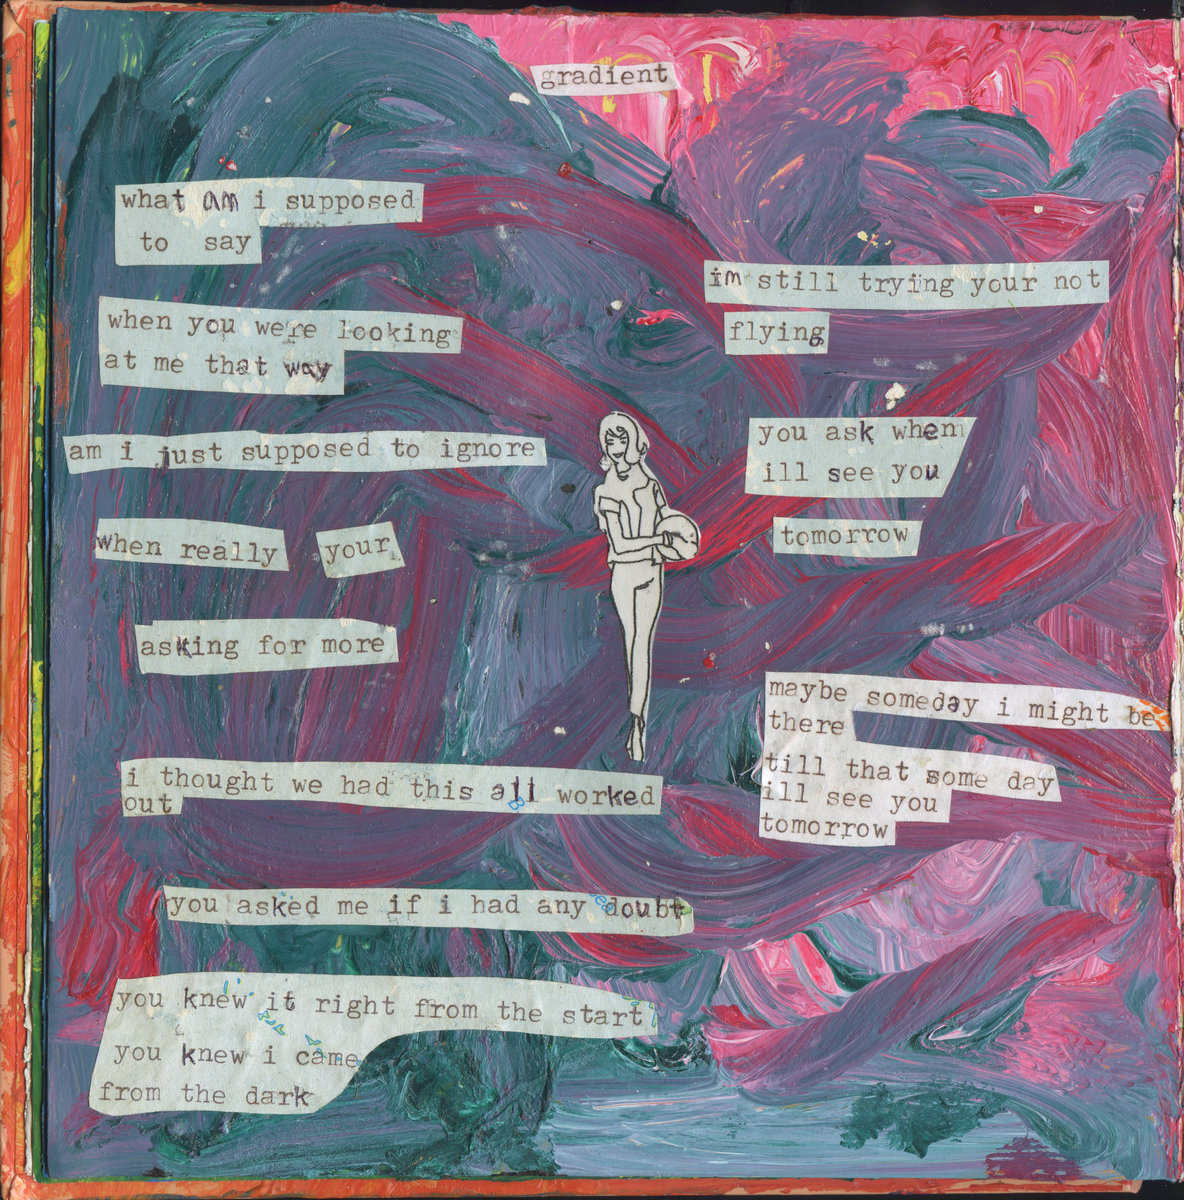 gradient
what am i supposed
to say
when you were looking
at me that way
am i just supposed to ignore
when really your
asking for more
i thought we had this all worked
out
you asked me if i had any doubt
you knew it right from the start
you knew i came
from the dark
im still trying your not
flying
you ask when
ill see you
tomorrow
maybe someday i might be
there
till that some day
ill see you
tomorrow